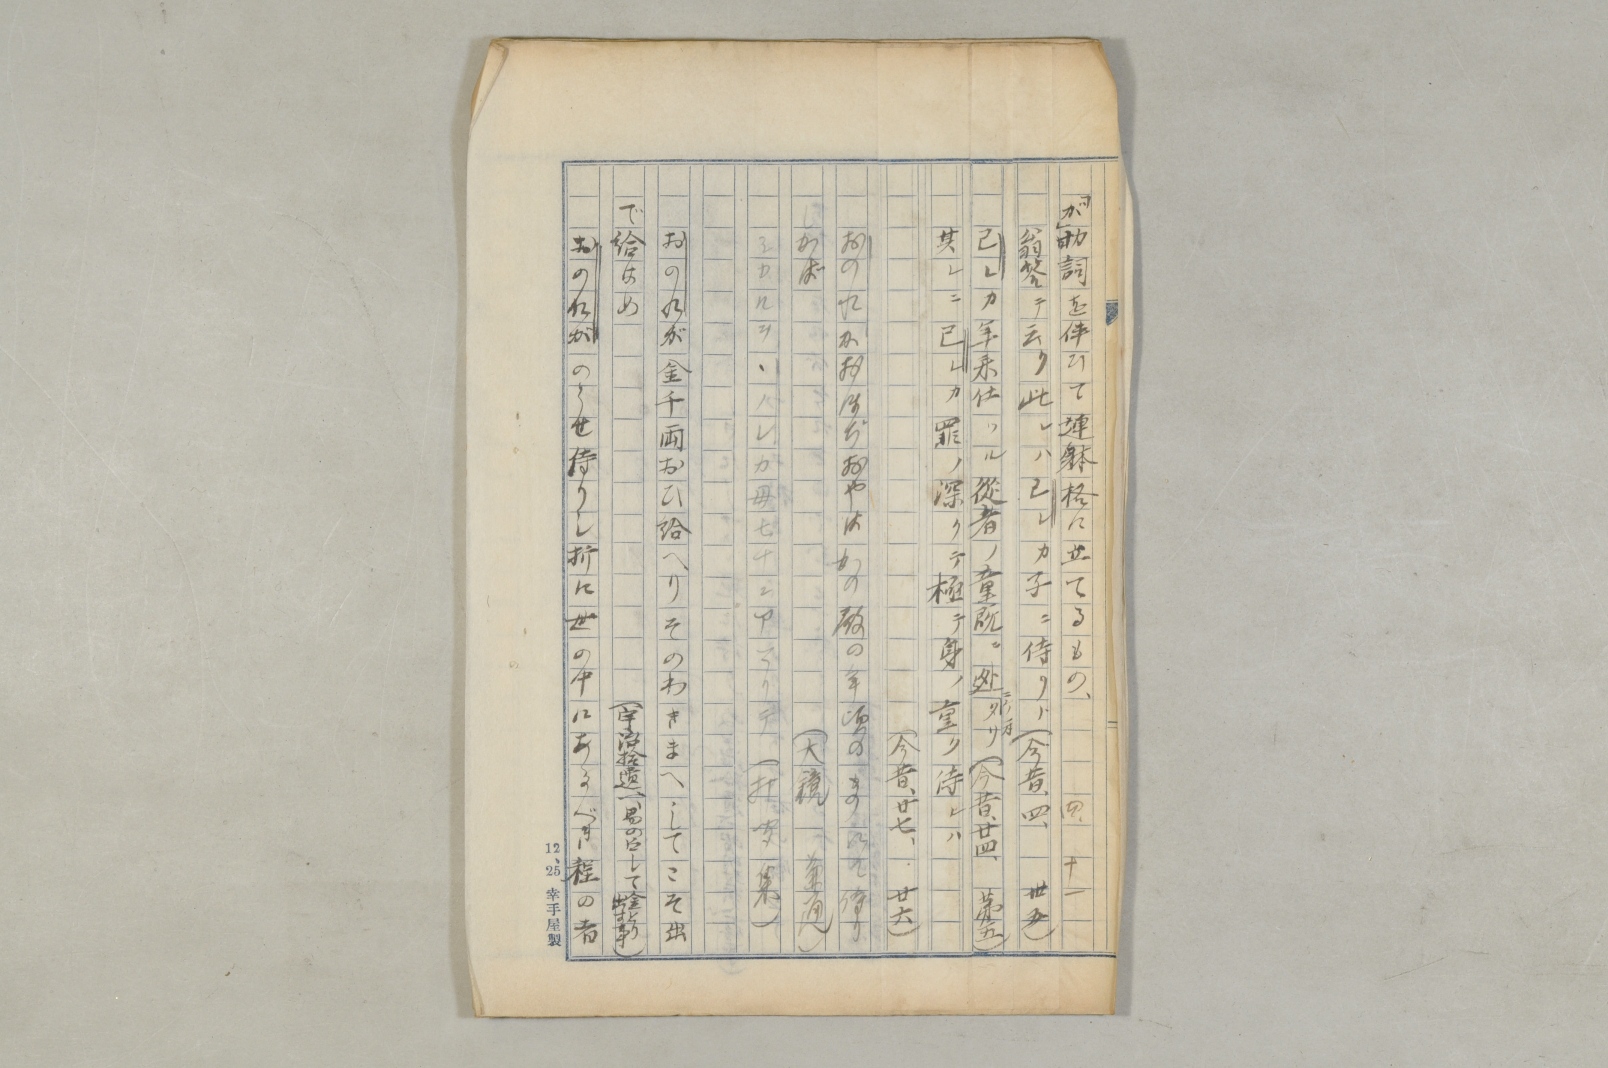 「が」助詞を伴ひて連体格に立てるもの、
翁答テ云ク此レハ己レカ子ニ侍リ、(今昔、四、卅五)
己レカ年来仕ツル従者ノ童既ニ処 タリ(今昔、廿四、第五)
其レニ己レカ罪ノ深クテ極テ身ノ重ク侍レハ
(今昔、廿七、廿六)
おのれがおほぢおやはかの殿の年頃のものにて侍り
しかば(大鏡 兼通)
レカ母七十ニ テ
おのれが金千両おひ給へりそのわきまへしてこそ出
で給はめ(宇治拾遺、易の占して金とり出す事)
おのれがのしせ侍りし折に世の中にあるべき程の者
12、25 幸手屋製